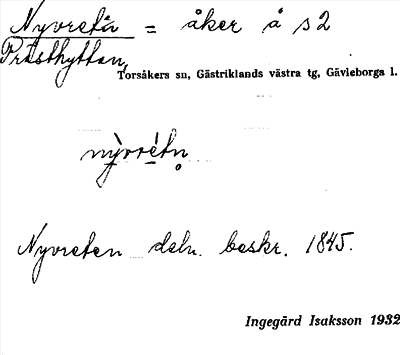 Nyvretån = åker å s2
Prästhyttan,
Torsåkers sn, Gästriklands västra tg, Gävleborgs l.
Nyvreten deln. beskr. 1845.
Ingegärd Isaksson 1932